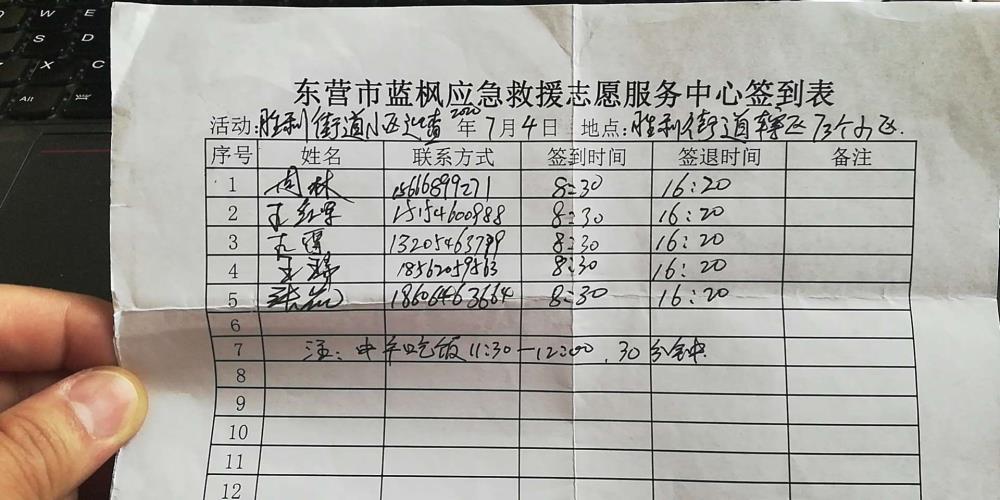 东营市蓝枫应急救援志愿服务中心签到表
活动:胜利街道小区巡查 2020年7月4日 地点:胜利街道辖区73个小区.
序号 姓名 联系方式 签到时间 签退时间 备注
1 周林 15616899271 8:30 16:20
2 王红军 15154600988 8:30 16:20
3 13205463799 8:30 16:20
4 王 18562059563 8:30 16:20
5 张 18604463664 8:30 16:20
6
7 注:中午吃饭11:30—12:00,30分钟.
8
9
10
11
12